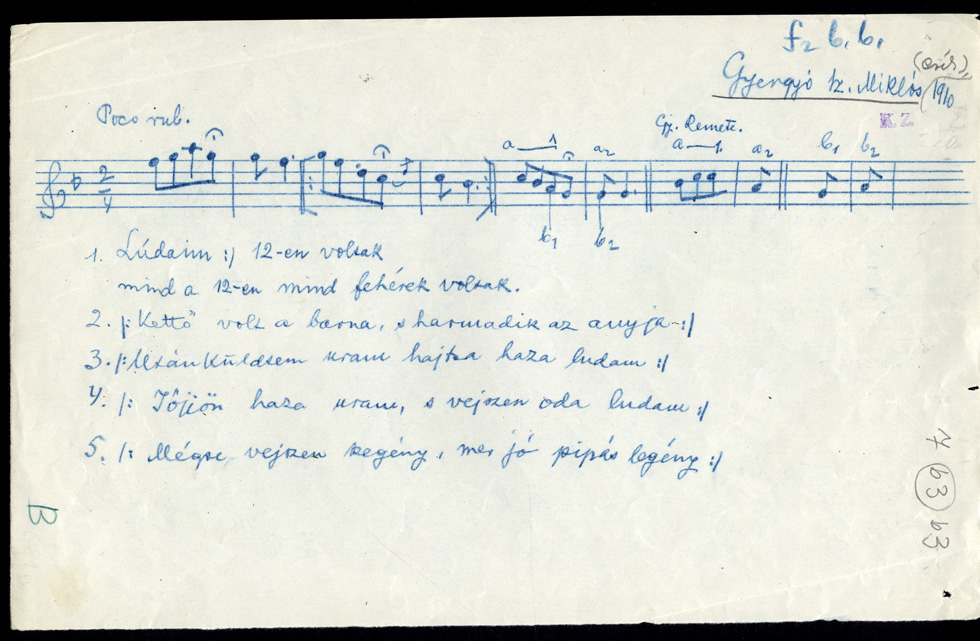 f₂ b. b.
Gyergyó sz. Miklós
1910
K Z
Poco rub.
Gy. Remete.
a 1
a₂
a 1.
a₂
b₁
b₂
2
4
b₁
b₂
1. Lúdaim :/ 12-en voltak
mind a 12-en mind fehérek voltak.
2. /: Kettő volt a barna, s harmadik az anyja :/
3. /: Utánküldtem uram hajtsa haza ludam :/
4. /: Jőjjön haza uram, s vejszen oda ludam :/
5. /: Mégse vejszen szegény, mer jó pipás legény :/
B
7 63 63